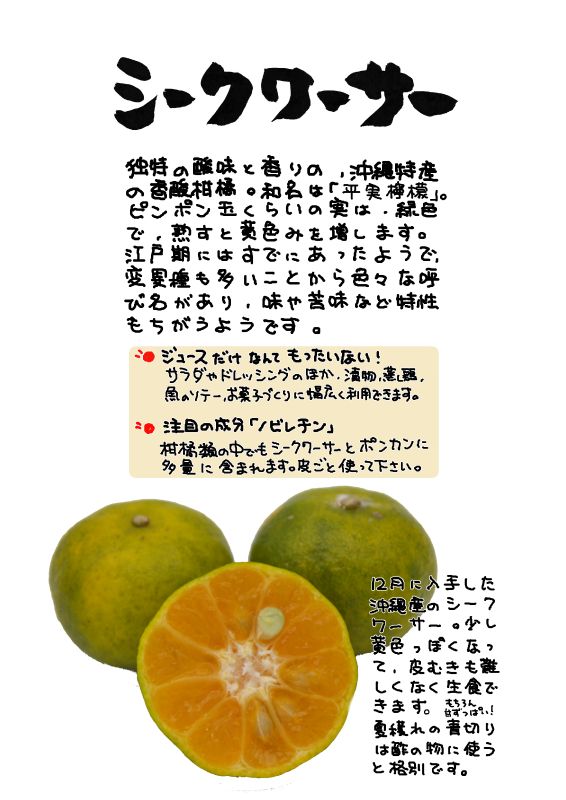 シークワーサー
独特の酸味と香りの、沖縄特産
の香酸柑橘。和名は「平実檸檬」。
ピンポン玉くらいの実は、緑色
で、熟すと黄色みを増します。
江戸期にはすでにあったようで、
変異種も多いことから色々な呼
び名があり、味や苦味など特性
もちがうようです。
ジュースだけなんてもったいない！
サラダやドレッシングのほか、漬物、蒸し麺、
魚のソテー、お菓子づくりに幅広く利用できます。
注目の成分「ノビレチン」
柑橘類の中でもシークワーサーとポンカンに
多量に含まれます。皮ごと使って下さい。
12月に入手した
沖縄産のシーク
ワーサー。少し
黄色っぽくなっ
て、皮むきも難
しくなく生食で
きます。もちろん
甘ずっぱい！
夏穫れの青切り
は酢の物に使う
と格別です。